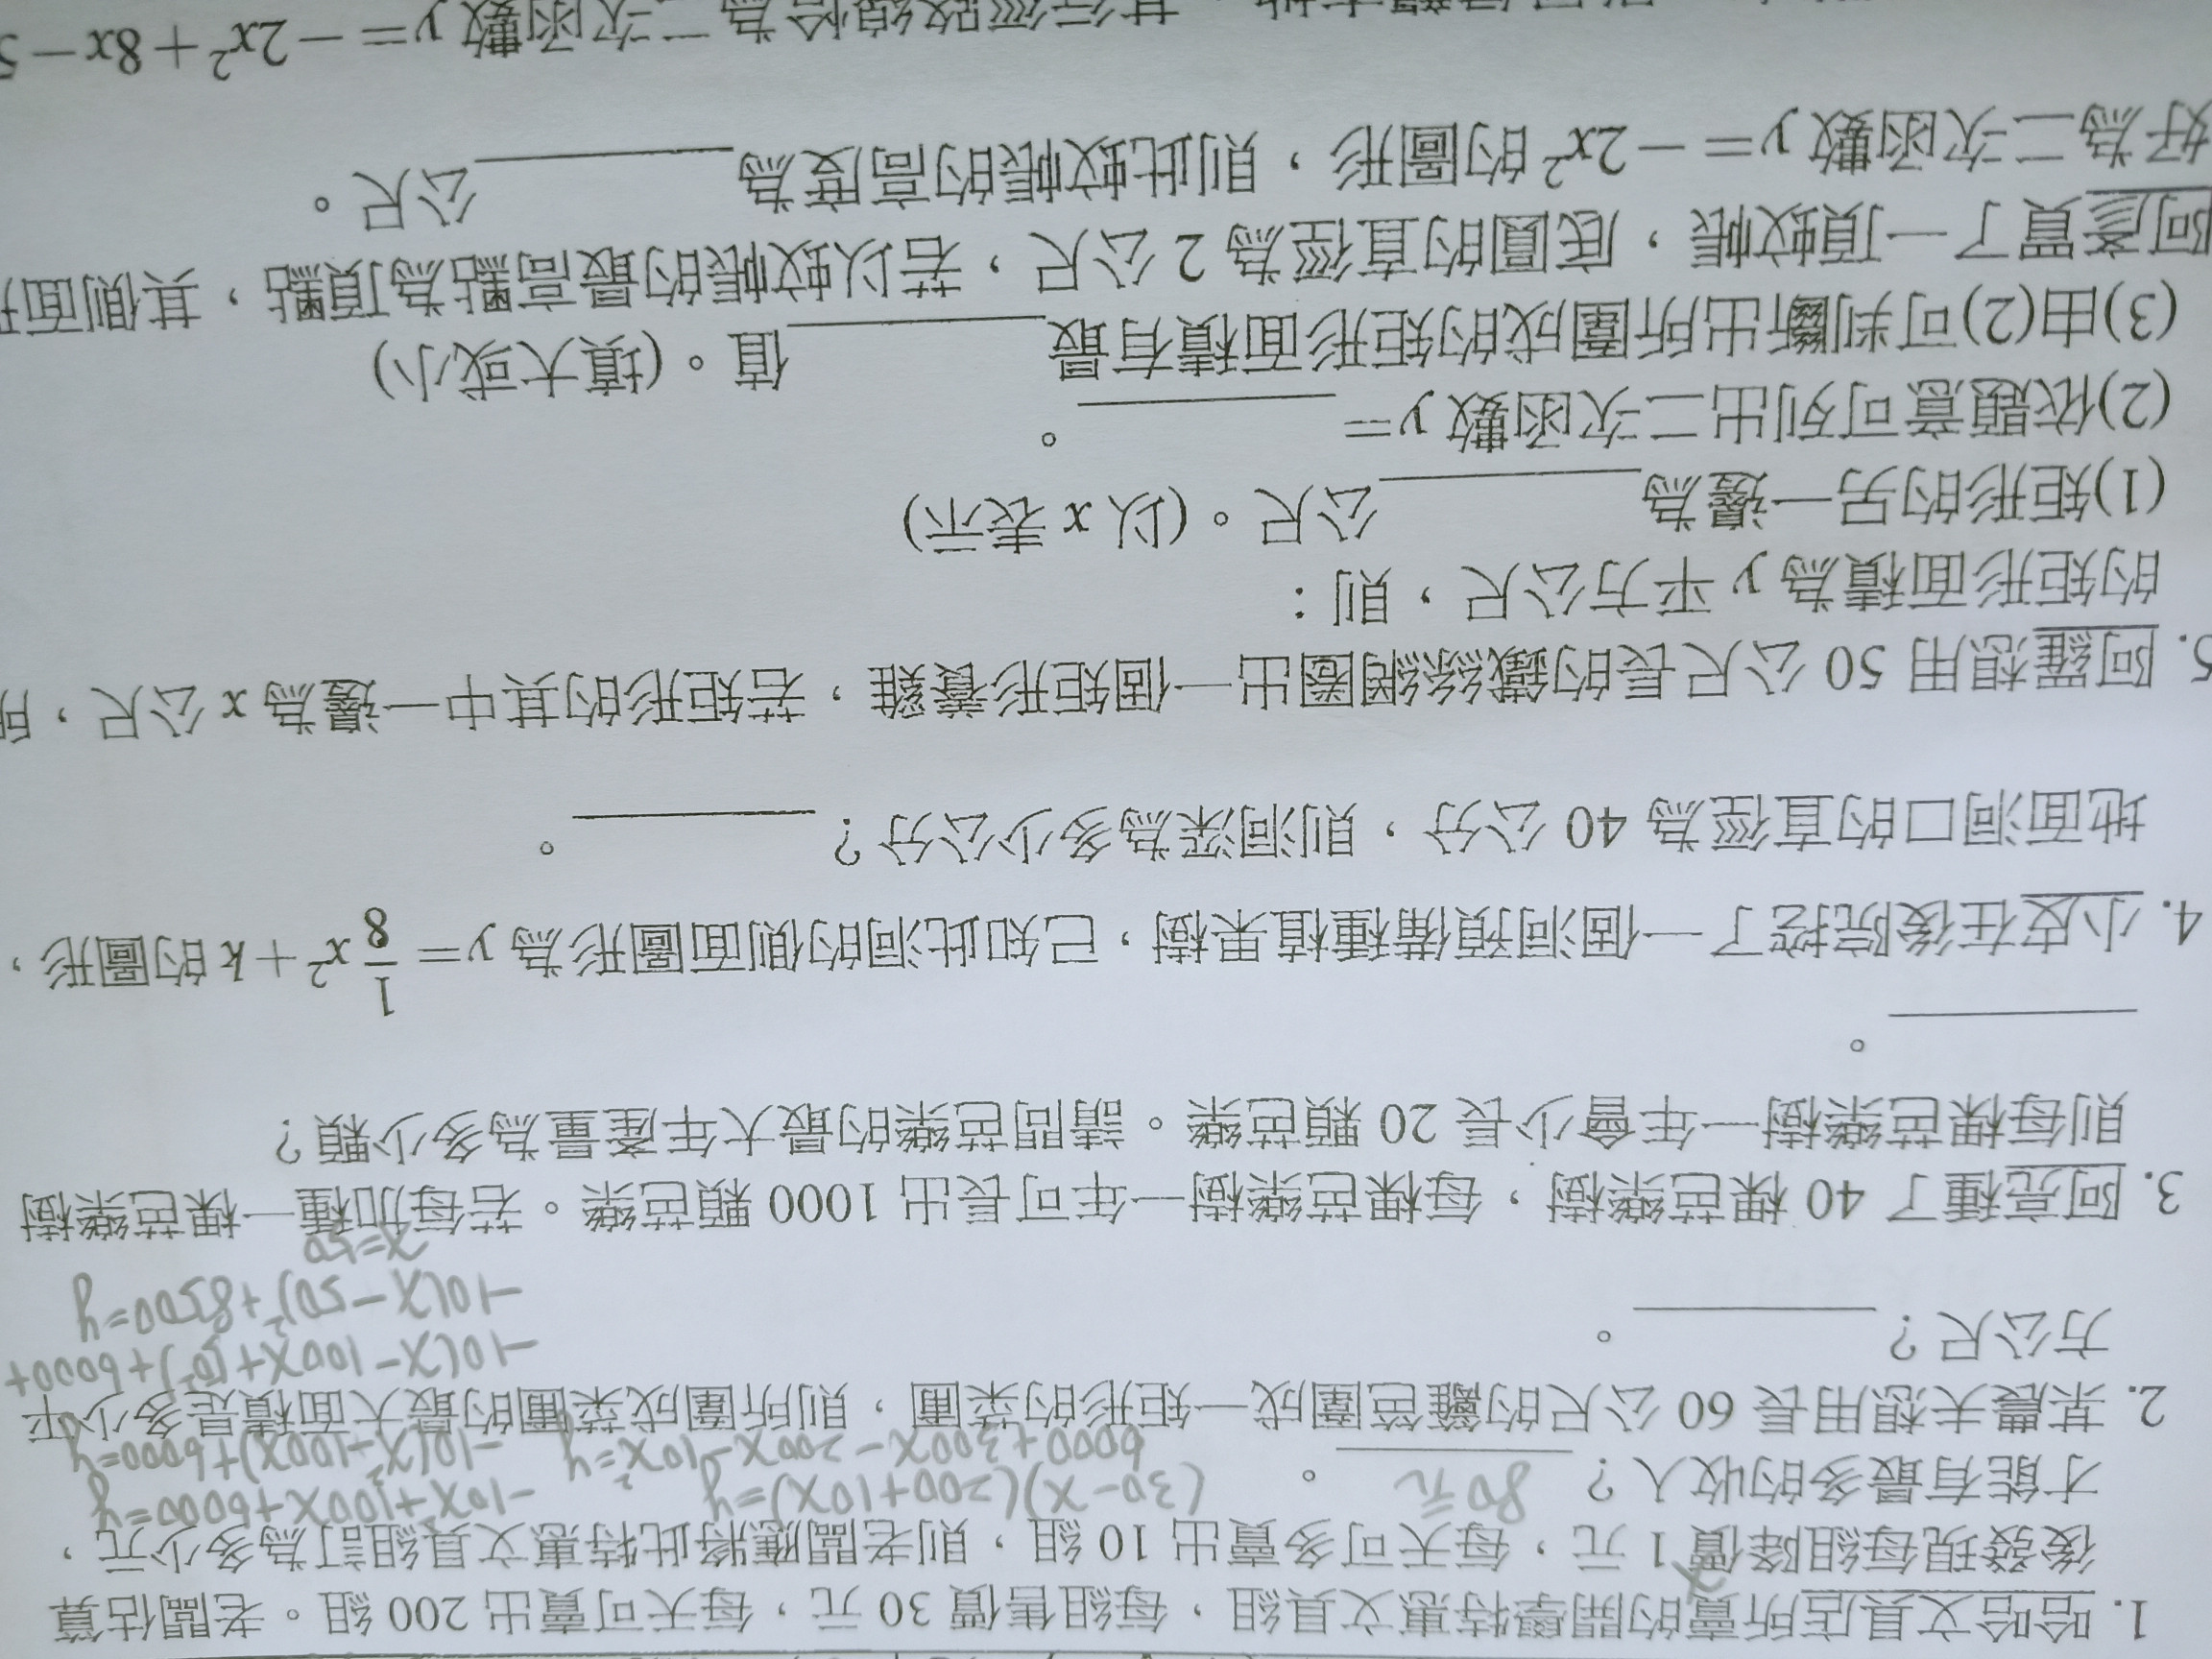 1. 哈哈文具店所賣的開學特惠文具組，每組售價 30 元，每天可賣出 200 組。老闆估算
後發現每組降價 1 元，每天可多賣出 10 組，則老闆應將此特惠文具組訂為多少元，
x
才能有最多的收入？80元。
(30-x)(200+10x)=y
6000+300x-200x-10x²=y
-10x²+100x+6000=y
-10(x²-100x)+6000=y
2. 某農夫想用長 60 公尺的籬笆圍成一矩形的菜圃，則所圍成菜圃的最大面積是多少平
方公尺？。
-10(x-100x+50²)+6000+
-10(x-50)²+8500=y
x=50
3. 阿亮種了 40 棵芭樂樹，每棵芭樂樹一年可長出 1000 顆芭樂。若每加種一棵芭樂樹
則每棵芭樂樹一年會少長 20 顆芭樂。請問芭樂的最大年產量為多少顆？
。
4. 小皮在後院挖了一個洞預備種植果樹，已知此洞的側面圖形為 y = 1/8 x² + k 的圖形，
地面洞口的直徑為 40 公分，則洞深為多少公分？。
5. 阿羅想用 50 公尺長的鐵絲網圈出一個矩形養雞，若矩形的其中一邊為 x 公尺，所
的矩形面積為 y 平方公尺，則：
(1)矩形的另一邊為公尺。(以 x 表示)
(2)依題意可列出二次函數 y =。
(3)由(2)可判斷出所圍成的矩形面積有最值。(填大或小)
阿彥買了一頂蚊帳，底圓的直徑為 2 公尺，若以蚊帳的最高點為頂點，其側面形
好為二次函數 y = −2x² 的圖形，則此蚊帳的高度為公尺。
其行徑路線恰為二次函數 y = −2x² + 8x − 5